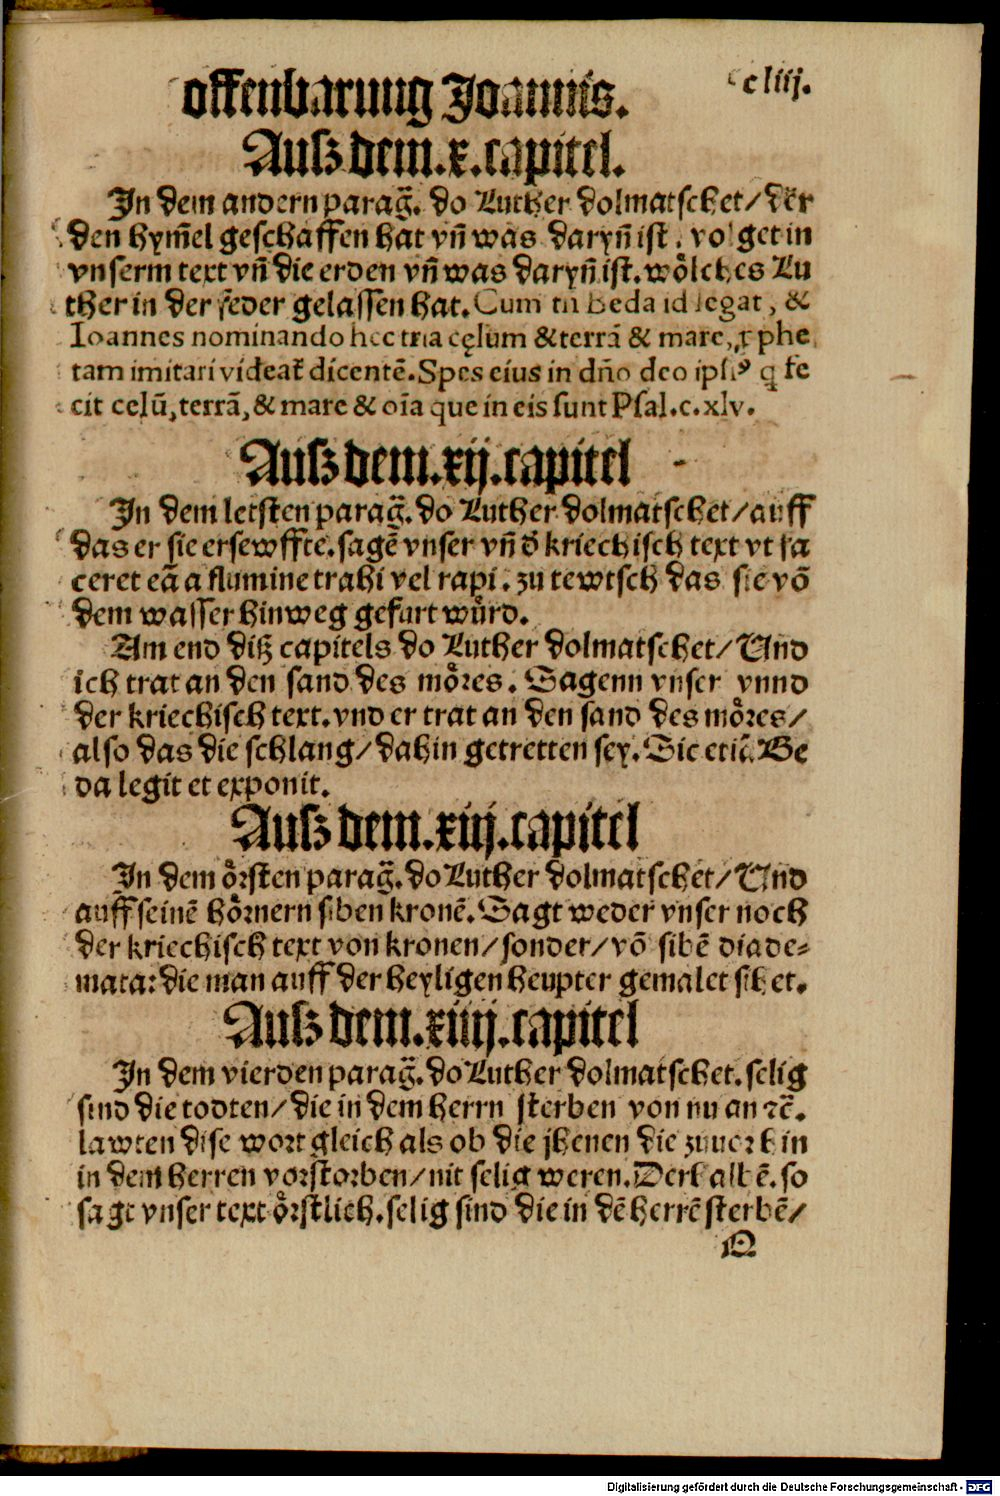 offenbarung Joannis. cliij.
Ausz dem.x.capitel.
In dem andern parag̃. do Luther dolmatschet/ der
den hym̃el geschaffen hat vñ was daryñ ist. volget in
vnserm text vñ die erden vñ was daryñ ist. wölches Lu
ther in der feder gelassen hat. Cum tñ Beda id legat, &
Ioannes nominando hec tria cęlum & terrã & mare, ꝓphe
tam imitari videat̃ dicentẽ. Spes eius in dño deo ipsiꝰ q fe
cit celũ, terrã, & mare & oĩa que in eis sunt Psal.c.xlv.
Ausz dem.xij.capitel
In dem letsten parag̃. do Luther dolmatschet/ auff
das er sie ersewffte. sagẽ vnser vñ d̃ kriechisch text vt fa
ceret eã a flumine trahi vel rapi. zu tewtsch das sie võ
dem wasser hinweg gefurt wůrd.
Am end ditz capitels do Luther dolmatschet/ Vnd
ich trat an den sand des möres. Sagenn vnser vnnd
der kriechisch text. vnd er trat an den sand des möres/
also das die schlang/ dahin getretten sey. Sic etiã Be
da legit et exponit.
Ausz dem.xiij.capitel
In dem örsten parag̃. do Luther dolmatschet/ Vnd
auff seinẽ hörnern siben kronẽ. Sagt weder vnser noch
der kriechisch text von kronen/ sonder/ võ sibẽ diade⸗
mata: die man auff der heyligen heupter gemalet sihet.
Ausz dem.xiiij.capitel
In dem vierden parag̃. do Luther dolmatschet. selig
sind die todten/ die in dem herrn sterben von nu an ꝛc̃.
lawten dise wort gleich als ob die jhenen die zuuor hin
in dem herren vorstorben/ nit selig weren. Derhalbẽ. so
sagt vnser text örstlich. selig sind die in dẽ herrẽ sterbẽ/
Q
Digitalisierung gefördert durch die Deutsche Forschungsgemeinschaft - DFG